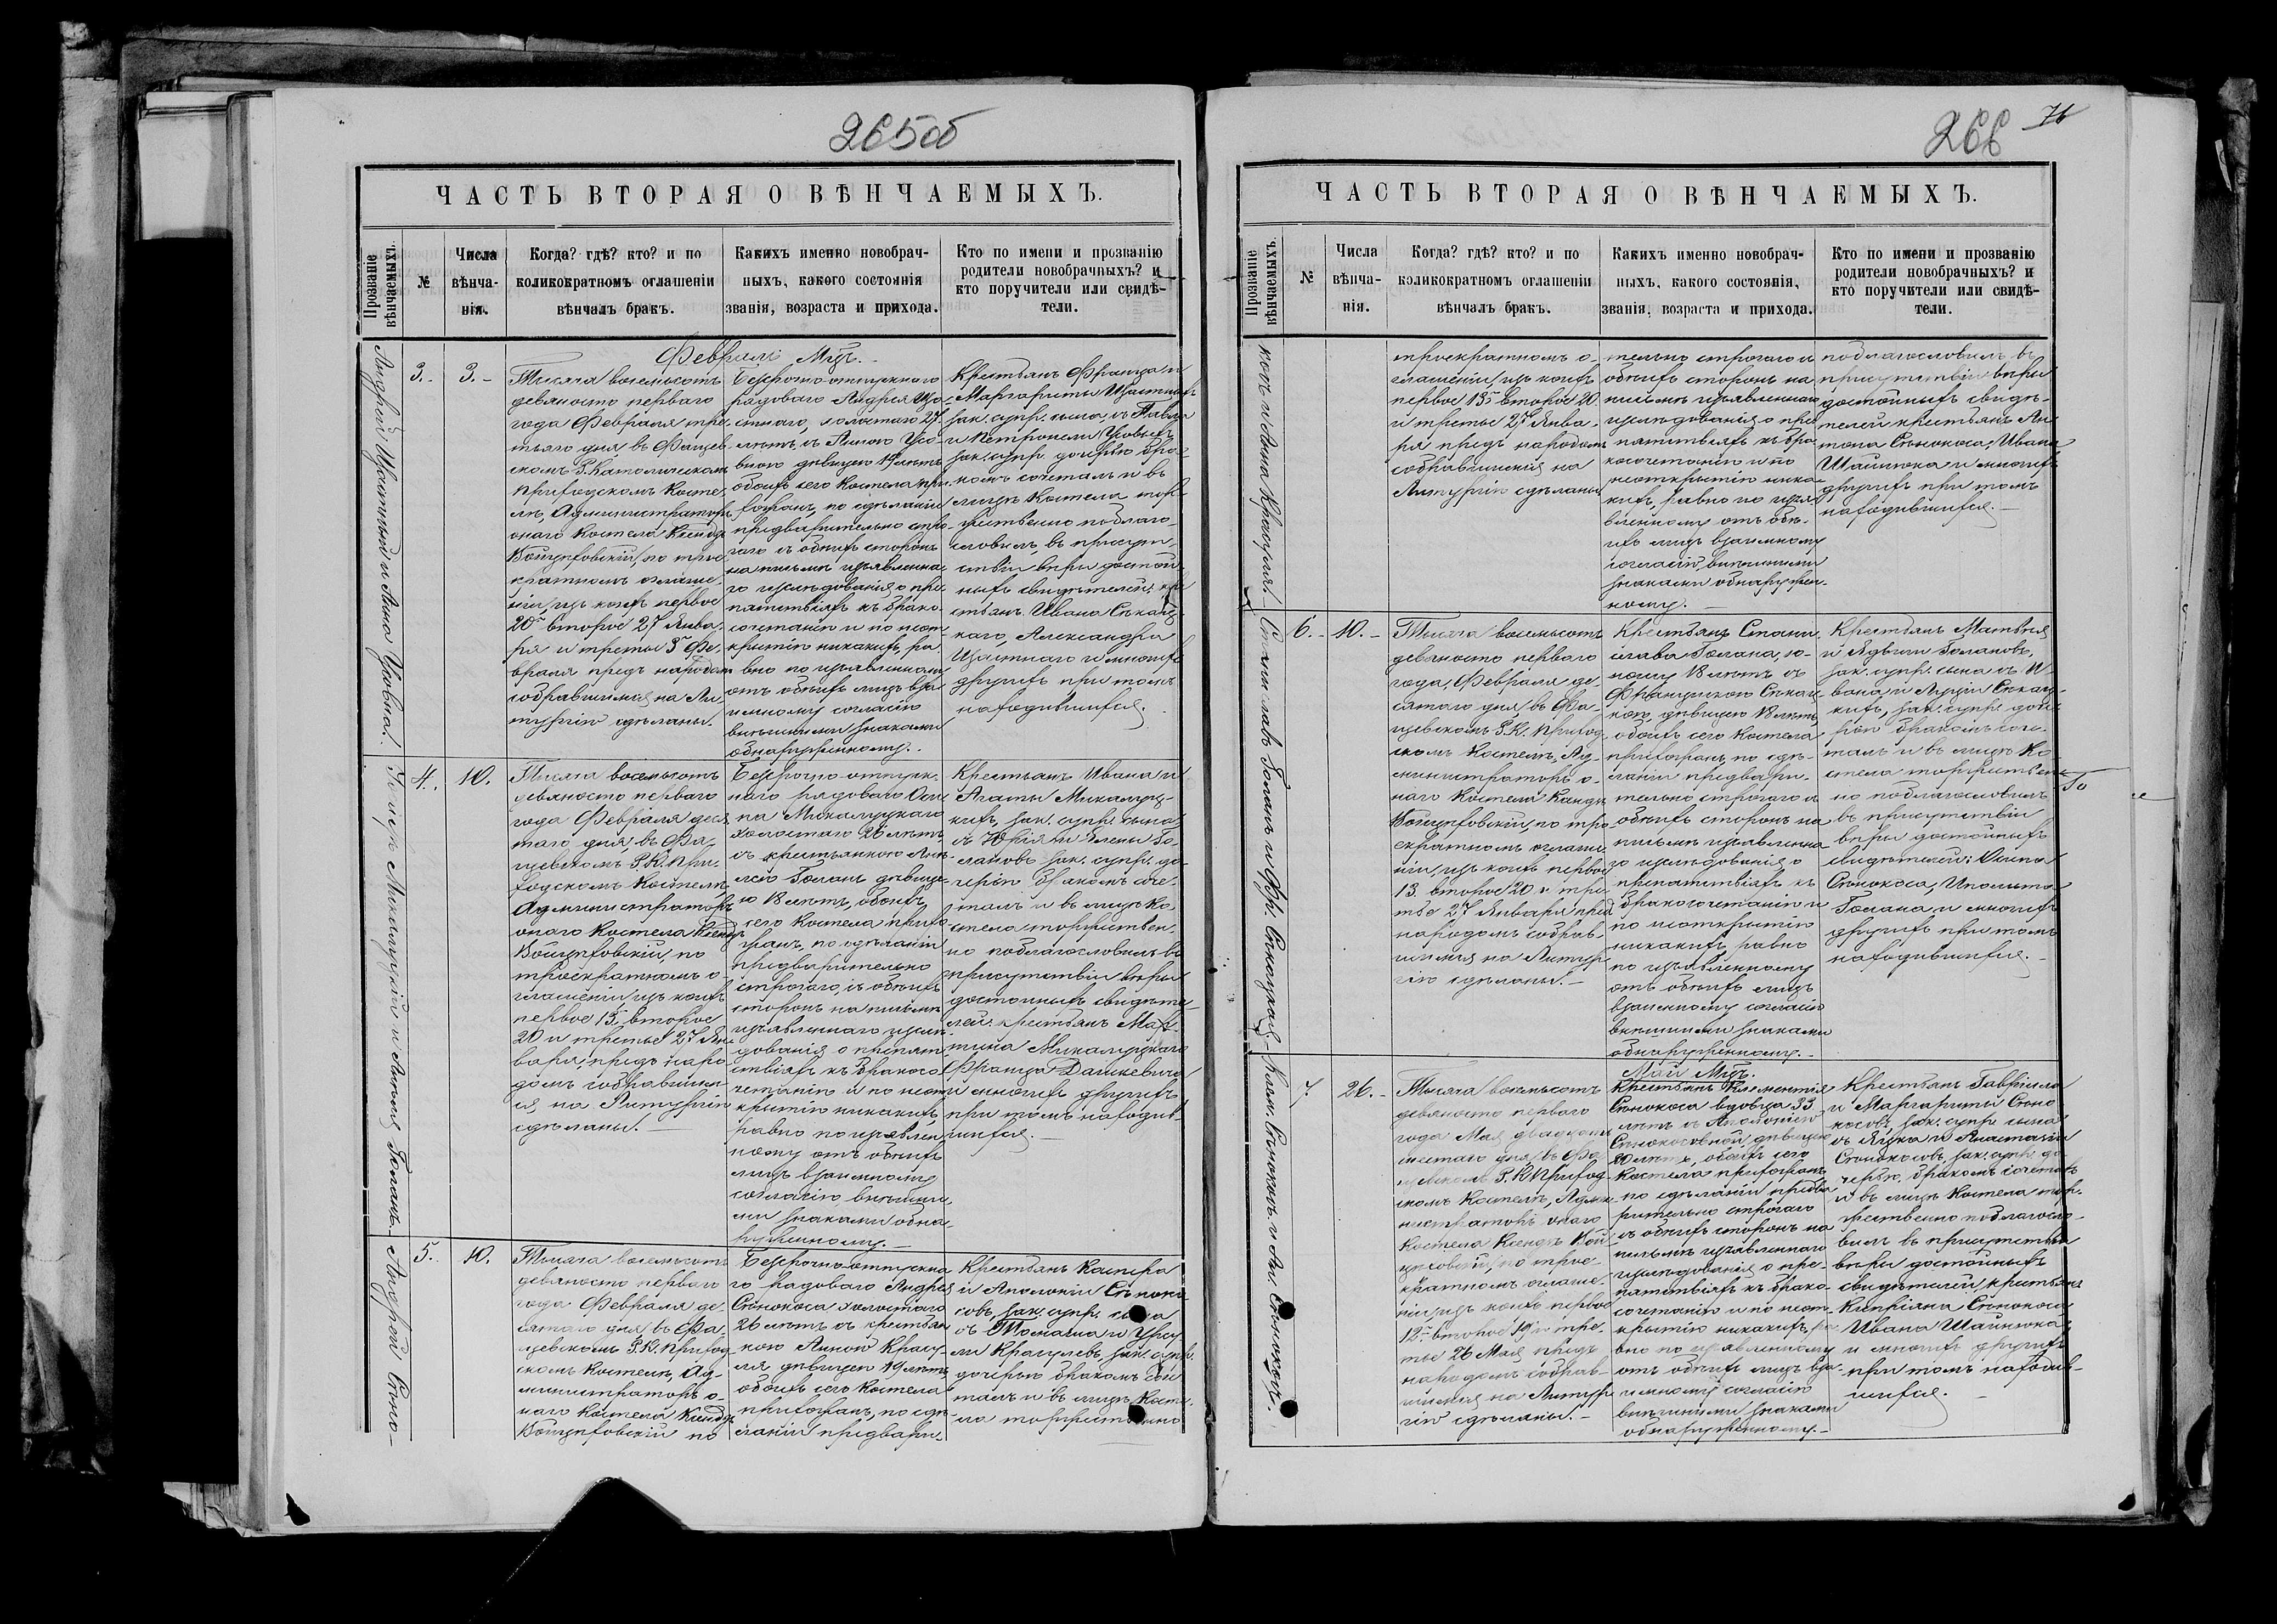 265 об
ЧАСТЬ ВТОРАЯ О ВѢНЧАЕМЫХЪ.
Прозваніе вѣнчаемыхъ.
№
Числа
вѣнча-
нія.
Когда? гдѣ? кто? и по
коликократномъ оглашеніи
вѣнчалъ бракъ.
Какихъ именно новобрач-
ныхъ, какого состоянія
званія, возраста и прихода.
Кто по имени и прозванію
родители новобрачныхъ? и
кто поручители или свидѣ-
тели.
Февраль Мцъ.
3.
3.
Тысяча восемьсотъ
девяносто перваго
года Февраля тре-
тьяго дня, въ Фащев-
скомъ Р. Католическомъ
Приходскомъ Косте-
лѣ, Администраторъ
онаго Костела Ксендзъ
по трое-
кратномъ оглаше-
ніи, изъ коихъ первое
20 второе 27 Янва-
ря и третье 3 Фе-
враля предъ народомъ
собравшимся на Ли-
тургію сдѣланы.
Безсрочно-отпускного
рядоваго Андрея
холостаго 27
лѣтъ, съ Анною
дѣвицею 19 лѣтъ
обоихъ сего Костела при-
хожанъ, по сдѣланіи
предварительно стро-
гаго съ обоихъ сторонъ
на письмѣ изъявленна-
го изслѣдованія о пре-
пятствіяхъ къ брако-
сочетанію и по неот-
крытію никакихъ, ра-
вно по изъявленному
отъ обоихъ лицъ вза-
имному согласію
внѣшними знаками
обнаруженному.
Крестьянъ Франца и
Маргариты
зак. супр. сына, съ Павла
и Петронели
зак. супр. дочерью бра-
комъ сочеталъ и въ
лицѣ Костела тор-
жественно поблаго-
словилъ, въ присут-
ствіи вѣры достой-
ныхъ свидѣтелей: кре-
стьянъ Ивана
Александра
и многихъ
другихъ при томъ
находившихся.
4.
10.
Тысяча восемьсотъ
девяносто перваго
года Февраля деся-
таго дня, въ Фа-
щевскомъ Р. К. При-
ходскомъ Костелѣ,
Администраторъ
онаго Костела Ксендзъ
по
троекратномъ о-
глашеніи, изъ коихъ
первое 13, второе
20 и третье 27 Ян-
варя, предъ наро-
домъ собравшим-
ся на Литургію
сдѣланы.
Безсрочно-отпуск-
наго рядоваго Оси-
па Михалуцкаго
холостаго 26 лѣтъ,
съ крестьянкою
Голанъ дѣвице-
ю 18 лѣтъ, обоихъ
сего Костела прихо-
жанъ, по сдѣланіи
предварительно
строгаго, съ обоихъ
сторонъ на письмѣ
изъявленнаго изслѣ-
дованія о препят-
ствіяхъ къ бракосо-
четанію и по неот-
крытію никакихъ,
равно по изъявлен-
ному отъ обоихъ
лицъ взаимному
согласію внѣшни-
ми знаками обна-
руженному.
Крестьянъ Ивана и
Агаты Михалуц-
кихъ, зак. супр. сына,
съ Юрія и Елены Го-
лановъ зак. супр. до-
черью бракомъ соче-
талъ и въ лицѣ Ко-
стела торжествен-
но поблагословилъ въ
присутствіи вѣры
достойныхъ свидѣте-
лей: крестьянъ Мар-
тина Михалуцкаго
Франца Дашкевича
и многихъ другихъ
при томъ находив-
шихся.
5.
10.
Тысяча восемьсотъ
девяносто перваго
года Февраля де-
сятаго дня, въ Фа-
щевскомъ Р. К. Приход-
скомъ Костелѣ, Ад-
министраторъ о-
наго Костела Ксендзъ
по
Безсрочно-отпускна-
го рядоваго Андрея
Сѣнокоса холостаго
26 лѣтъ съ крестьян-
кою Анною Красу-
ля дѣвицею 19 лѣтъ,
обоихъ сего Костела
прихожанъ, по сдѣ-
ланіи предвари-
Крестьянъ Каспра
и Аполоніи Сѣноко-
совъ, зак. супр. сына
съ Томаша и Урсу-
ли Красулевъ зак. супр.
дочерью бракомъ соче-
талъ и въ лицѣ Косте-
ла торжественно
Андрей Сѣно-
266
76
ЧАСТЬ ВТОРАЯ О ВѢНЧАЕМЫХЪ.
Прозваніе вѣнчаемыхъ.
№
Числа
вѣнча-
нія.
Когда? гдѣ? кто? и по
коликократномъ оглашеніи
вѣнчалъ бракъ.
Какихъ именно новобрач-
ныхъ, какого состоянія,
званія, возраста и прихода.
Кто по имени и прозванію
родители новобрачныхъ? и
кто поручители или свидѣ-
тели.
косъ и Анна Красуля.
троекратномъ о-
глашеніи, изъ коихъ
первое 13 второе 20
и третье 27 Янва-
ря предъ народомъ
собравшимся на
Литургію сдѣланы.
тельнѣ строгаго съ
обоихъ сторонъ на
письмѣ изъявленнаго
изслѣдованія о пре-
пятствіяхъ къ бра-
косочетанію и по
неоткрытію ника-
кихъ, равно по изъя-
вленному отъ обо-
ихъ лицъ взаимному
согласію, внѣшними
знаками обнаружен-
ному.
поблагословилъ въ
присутствіи вѣры
достойныхъ свидѣ-
телей крестьянъ Ан-
тона Сѣнокоса, Ивана
Шайнюка и многихъ
другихъ при томъ
находившихся.
6.
10.
Тысяча восемьсотъ
девяносто перваго
года, Февраля де-
сятаго дня, въ Фа-
щевскомъ Р. К. Приход-
скомъ Костелѣ, Ад-
министраторъ о-
наго Костела Ксендзъ
по тро-
екратномъ оглаше-
ніи, изъ коихъ первое
13 второе 20 и тре-
тье 27 Января предъ
народомъ собрав-
шимся на Литур-
гію сдѣланы.
Крестьянъ Стани-
слава Голана, ю-
ношу 18 лѣтъ съ
Францишкою
дѣвицею 18 лѣтъ
обоихъ сего Костела
прихожанъ по сдѣ-
ланіи предвари-
тельно строгаго съ
обоихъ сторонъ на
письмѣ изъявленна-
го изслѣдованія о
препятствіяхъ къ
бракосочетанію и
по неоткрытію
никакихъ, равно
по изъявленному
отъ обоихъ лицъ
взаимному согласію
внѣшними знаками
обнаруженному.
Крестьянъ Матвѣя
и Ядвиги Голановъ,
зак. супр. сына съ И-
вана и Луціи
зак. супр. доче-
рью бракомъ соче-
талъ и въ лицѣ Ко-
стела торжествен-
но поблагословилъ
въ присутствіи
вѣры достойныхъ
свидѣтелей: Осипа
Сѣнокоса, Иполита
Голана и многихъ
другихъ при томъ
находившихся.
Май Мцъ.
7.
26.
Тысяча восемьсотъ
девяносто перваго
года Мая двадцать
шестаго дня, въ Фа-
щевскомъ Р. К. Приход-
скомъ Костелѣ, Адми-
нистраторъ онаго
Костела Ксендзъ
по трое-
кратномъ оглаше-
ніи, изъ коихъ первое
12 второе 19 и тре-
тье 26 Мая предъ
народомъ собрав-
шимся на Литур-
гію сдѣланы.
Крестьянъ Клементія
Сѣнокоса вдовца 33
лѣтъ съ Аполоніею
Сѣнокосовной, дѣвицею
20 лѣтъ, обоихъ сего
Костела прихожанъ
по сдѣланіи предва-
рительно строгаго
съ обоихъ сторонъ на
письмѣ изъявленнаго
изслѣдованія о пре-
пятствіяхъ къ брако-
сочетанію и по неот-
крытію никакихъ, ра-
вно по изъявленному
отъ обоихъ лицъ вза-
имному согласію
внѣшними знаками
обнаруженному.
Крестьянъ Гавріила
и Маргариты Сѣно-
косовъ, зак. супр. сына
съ Яцка и Анастасіи
Сѣнокосовъ зак. супр. до-
черью, бракомъ сочеталъ
и въ лицѣ Костела тор-
жественно поблагосло-
вилъ въ присутствіи
вѣры достойныхъ
свидѣтелей крестьянъ
Кипріяна Сѣнокоса
Ивана Шайнюка
и многихъ другихъ
при томъ находив-
шихся.